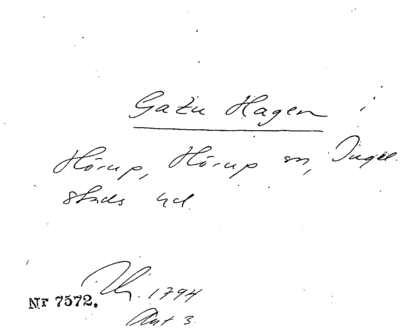 Gatu Hagen i
Hörup, Hörup sn, Ingel
stads hd.
Nr 7572. 1794
Akt 3.